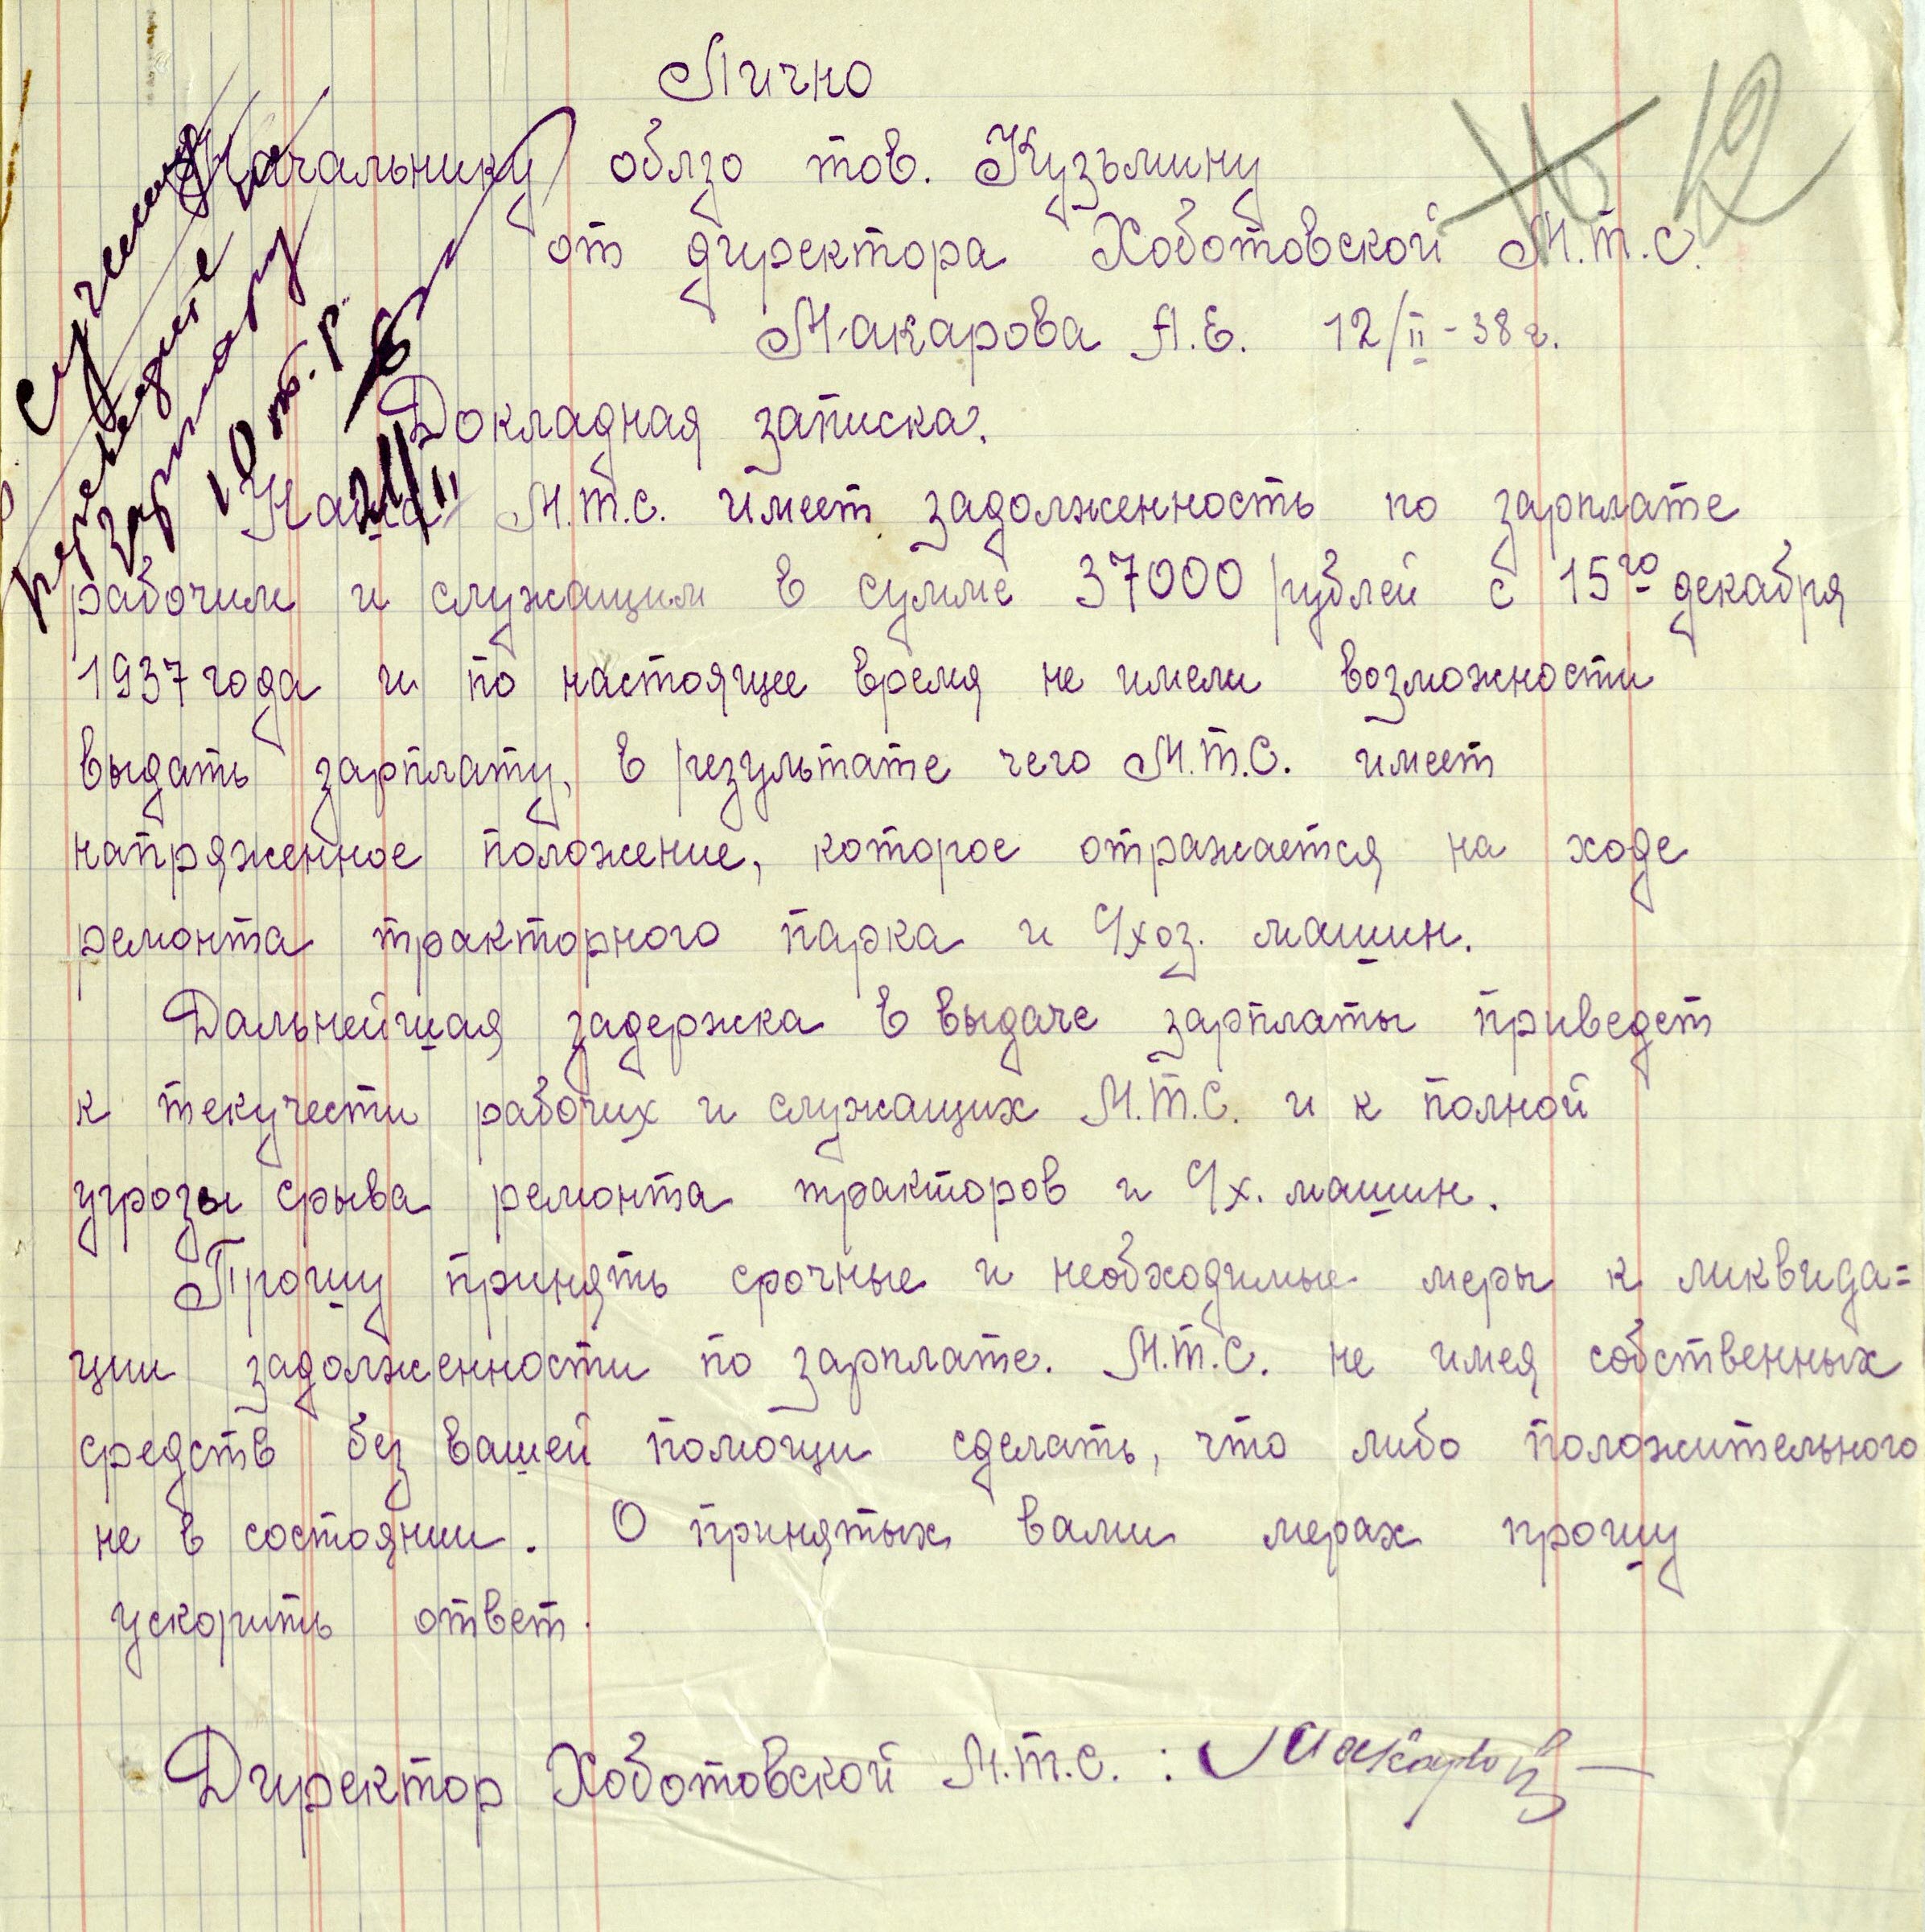 Лично
Начальнику облзо тов. Кузьмину
от директора Хоботовской М.Т.С.
Макарова А.Е. 12/II-38 г.
переведите
зарплату
10 т.р.
21/II
12
Докладная записка.
Наша М.Т.С. имеет задолженность по зарплате
рабочим и служащим в сумме 37000 рублей с 15го декабря
1937 года и по настоящее время не имели возможности
выдать зарплату, в результате чего М.Т.С. имеет
напряженное положение, которое отражается на ходе
ремонта тракторного парка и с/хоз. машин.
Дальнейшая задержка в выдаче зарплаты приведет
к текучести рабочих и служащих М.Т.С. и к полной
угрозы срыва ремонта тракторов и с/х. машин.
Прошу принять срочные и необходимые меры к ликвида=
ции задолженности по зарплате. М.Т.С. не имея собственных
средств без вашей помощи сделать, что либо положительного
не в состоянии. О принятых вами мерах прошу
ускорить ответ.
Директор Хоботовской М.Т.С. : Макаров